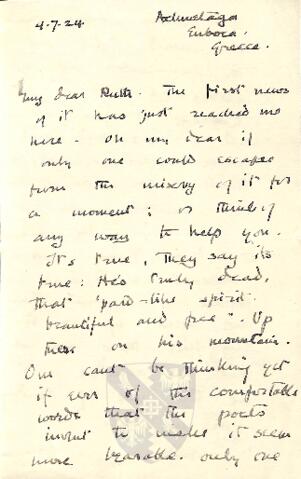 4-7-24
Achmetaga
Euboea.
Greece.
My dear Ruth - The first news
of it has just reached me
here - Oh my dear if
only one could escape
from the misery of it for
a moment; or think of
any way to help you.
It's true, they say its
true: He's truly dead,
that "pard-like spirit
beautiful and free". Up
there on his mountain.
One cant be thinking yet
if ever of the comfortable
words that the poets
invent to make it seem
more bearable. only one